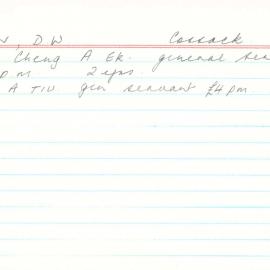 , D W Cossack
Cheng A Ek. general
P M 2 yrs.
A TIU gen servant £4 pm